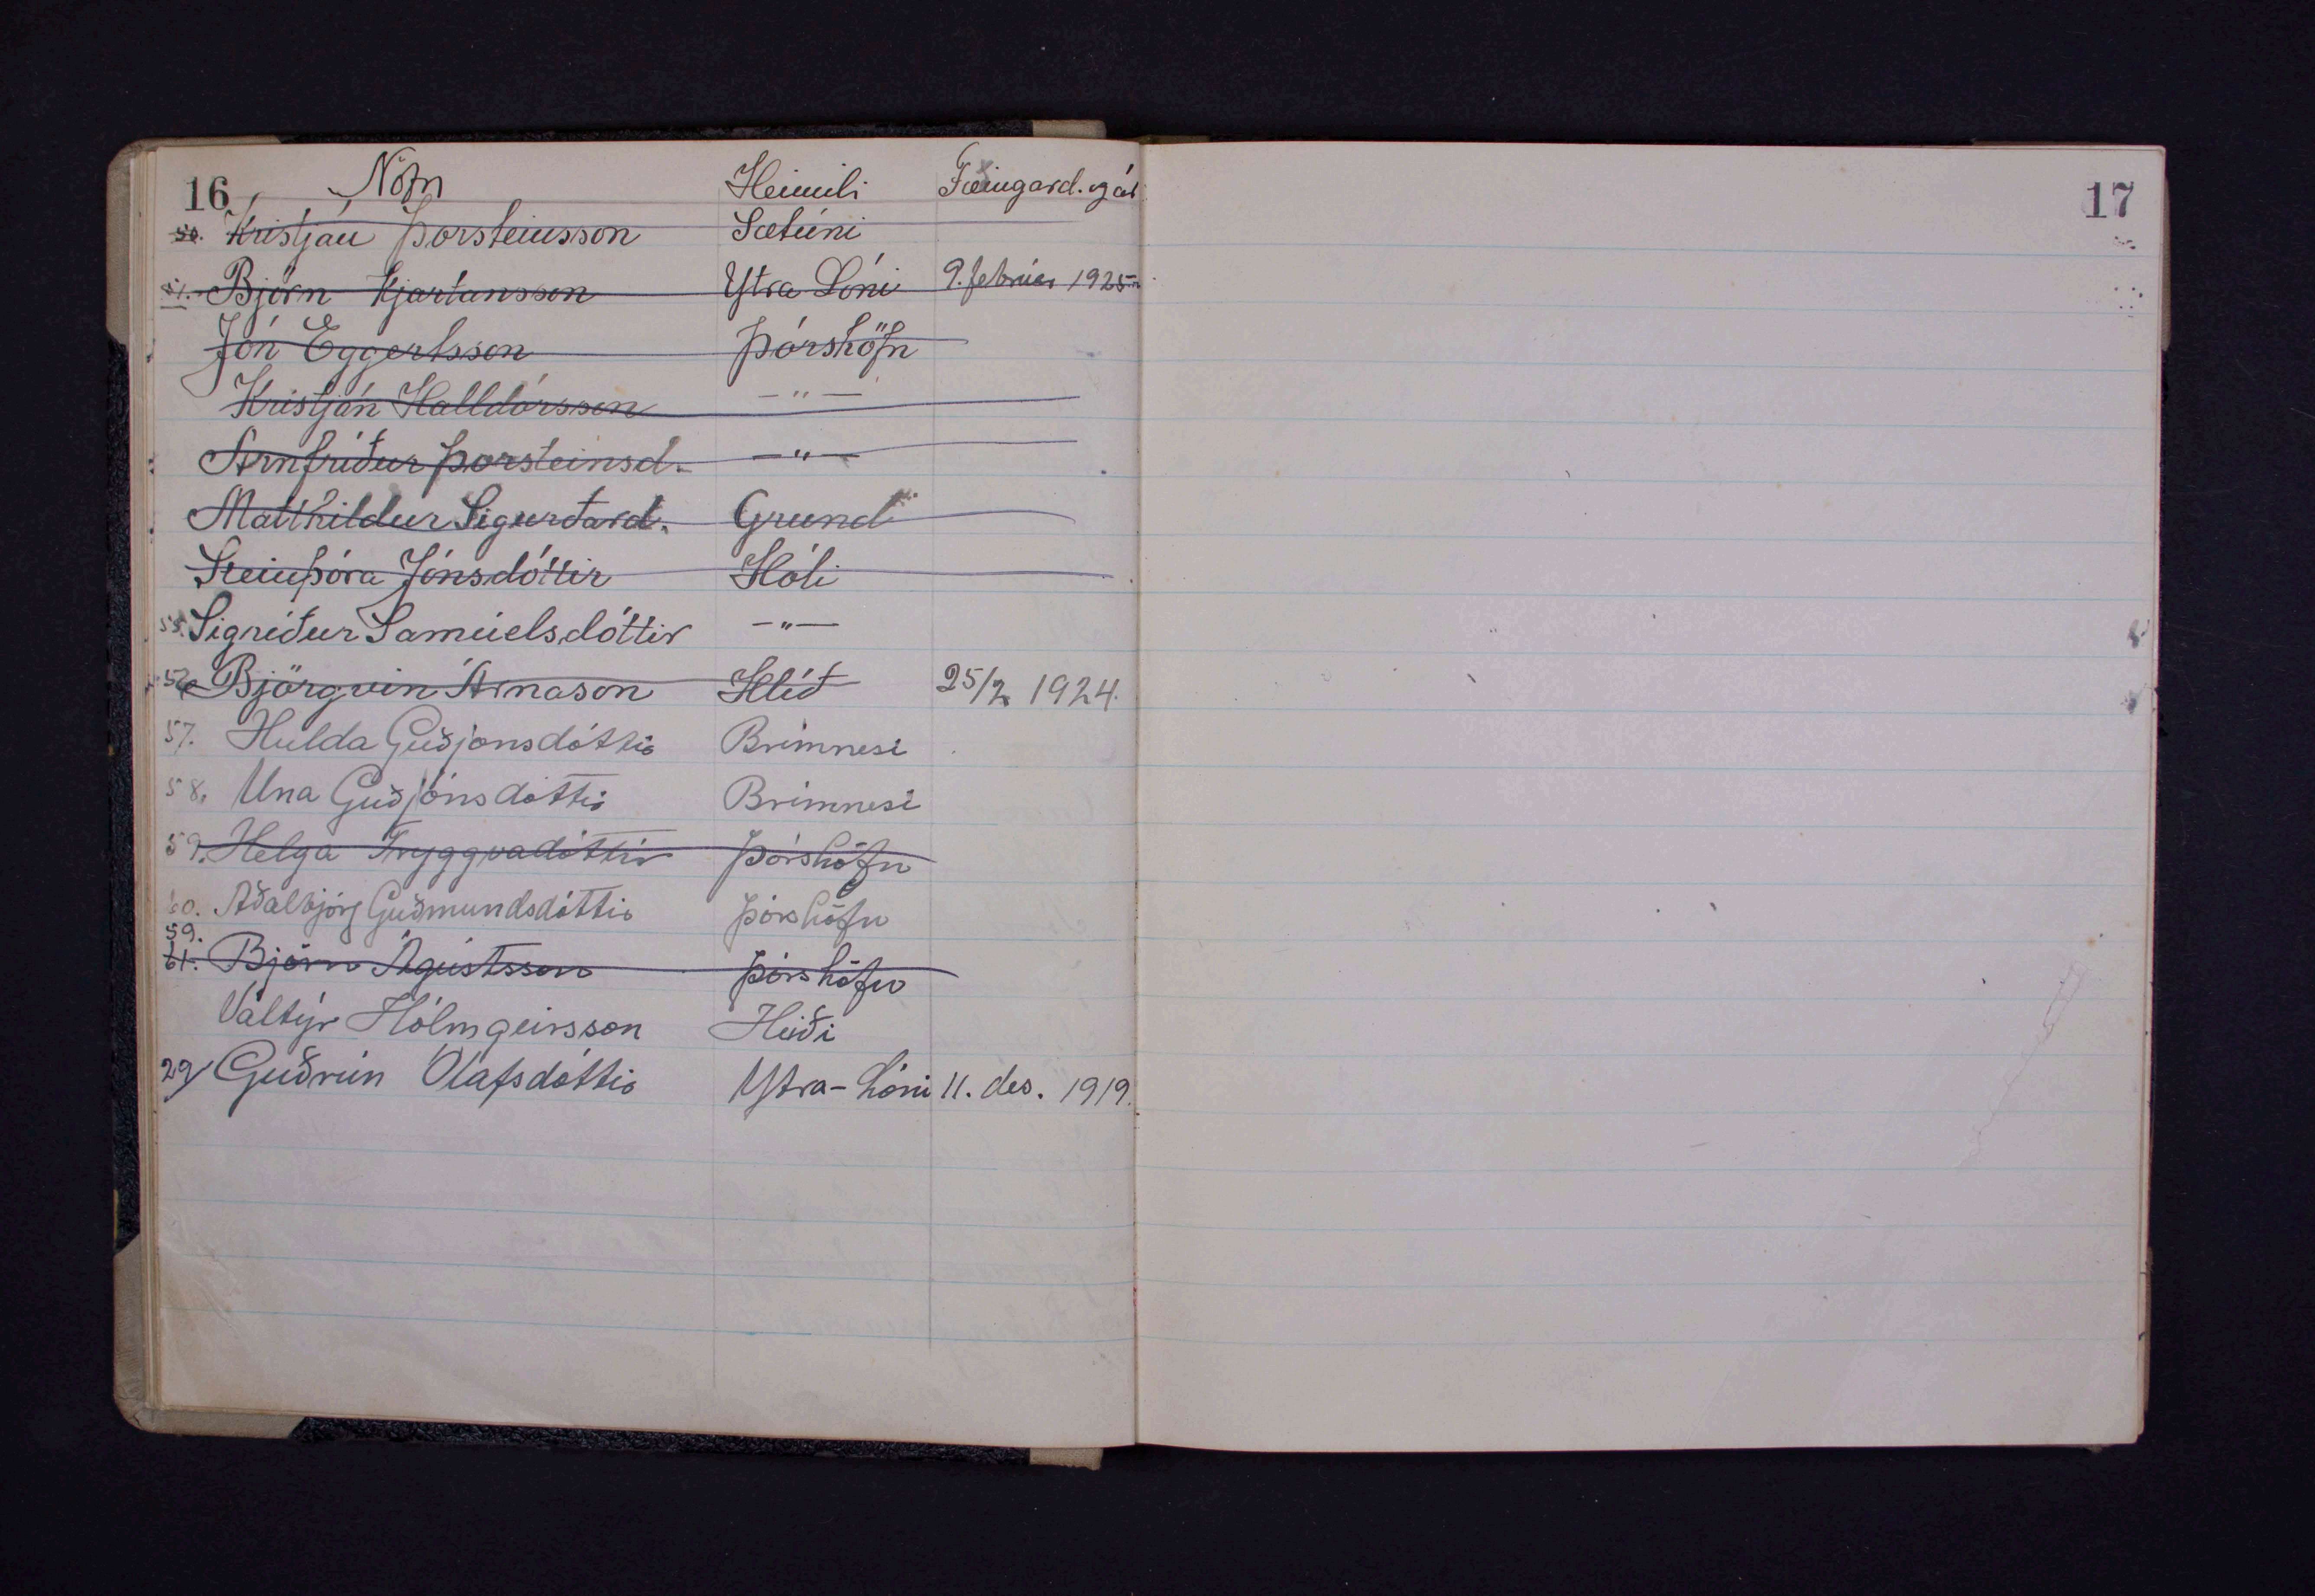 16 Nöfn Heimili Fæingard. og ár
50. Kristján Þorsteinsson Sætúni
51. Björn Kjartansson Ytra Lóni 9. febrúar 1925
Jón Eggertsson Þórshöfn
Kristján Halldórsson —"—
Arnfríður Þorsteinsd. —"—
Matthildur Sigurðard. Grund
Steinþóra Jónsdóttir Hóli
55. Sigríður Samúelsdóttir —"—
56 Björgvin Árnason Hlíð 25/2 1924.
57. Hulda Guðjonsdóttir Brimnesi
58. Una Guðjónsdóttir Brimnesi
59. Helga Tryggvadóttir Þórshöfn
60. Aðalbjörg Guðmundsdóttir Þórshöfn
59.
61. Björn Ágústsson Þórshöfn
Valtýr Hólmgeirsson Heiði
29 Guðrún Ólafsdóttir Ytra-Lóni 11. des. 1919.
17